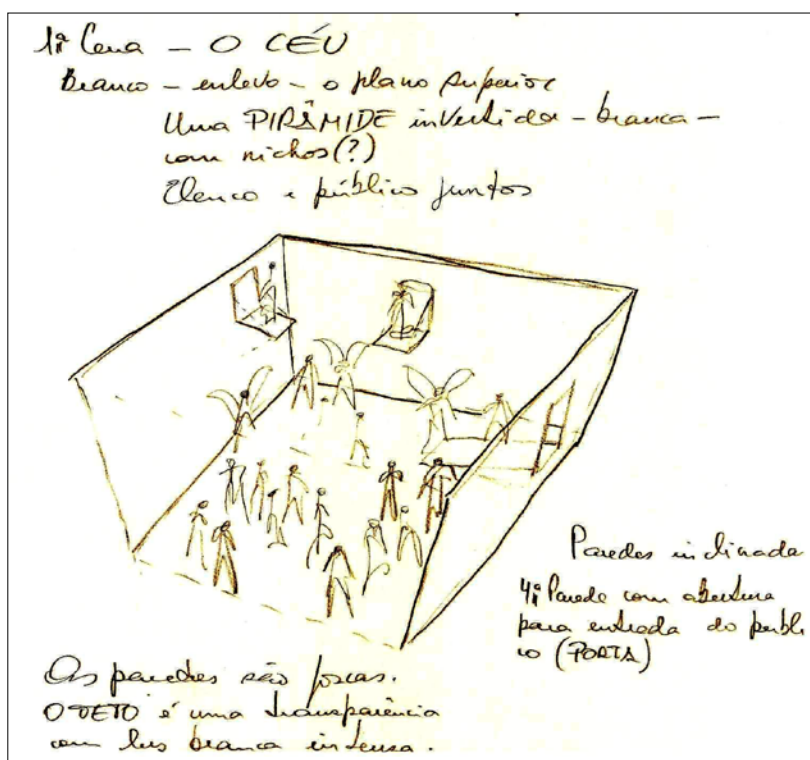 1ª Cena – O CÉU
Branco – enlevo – o plano superior
Uma PIRÂMIDE invertida – branca –
com nichos (?)
Elenco e público juntos
Paredes inclinada
4ª Parede com abertura
para entrada do públi
co (PORTA)
As paredes são foscas.
O TETO é uma transparência
com luz branca intensa.